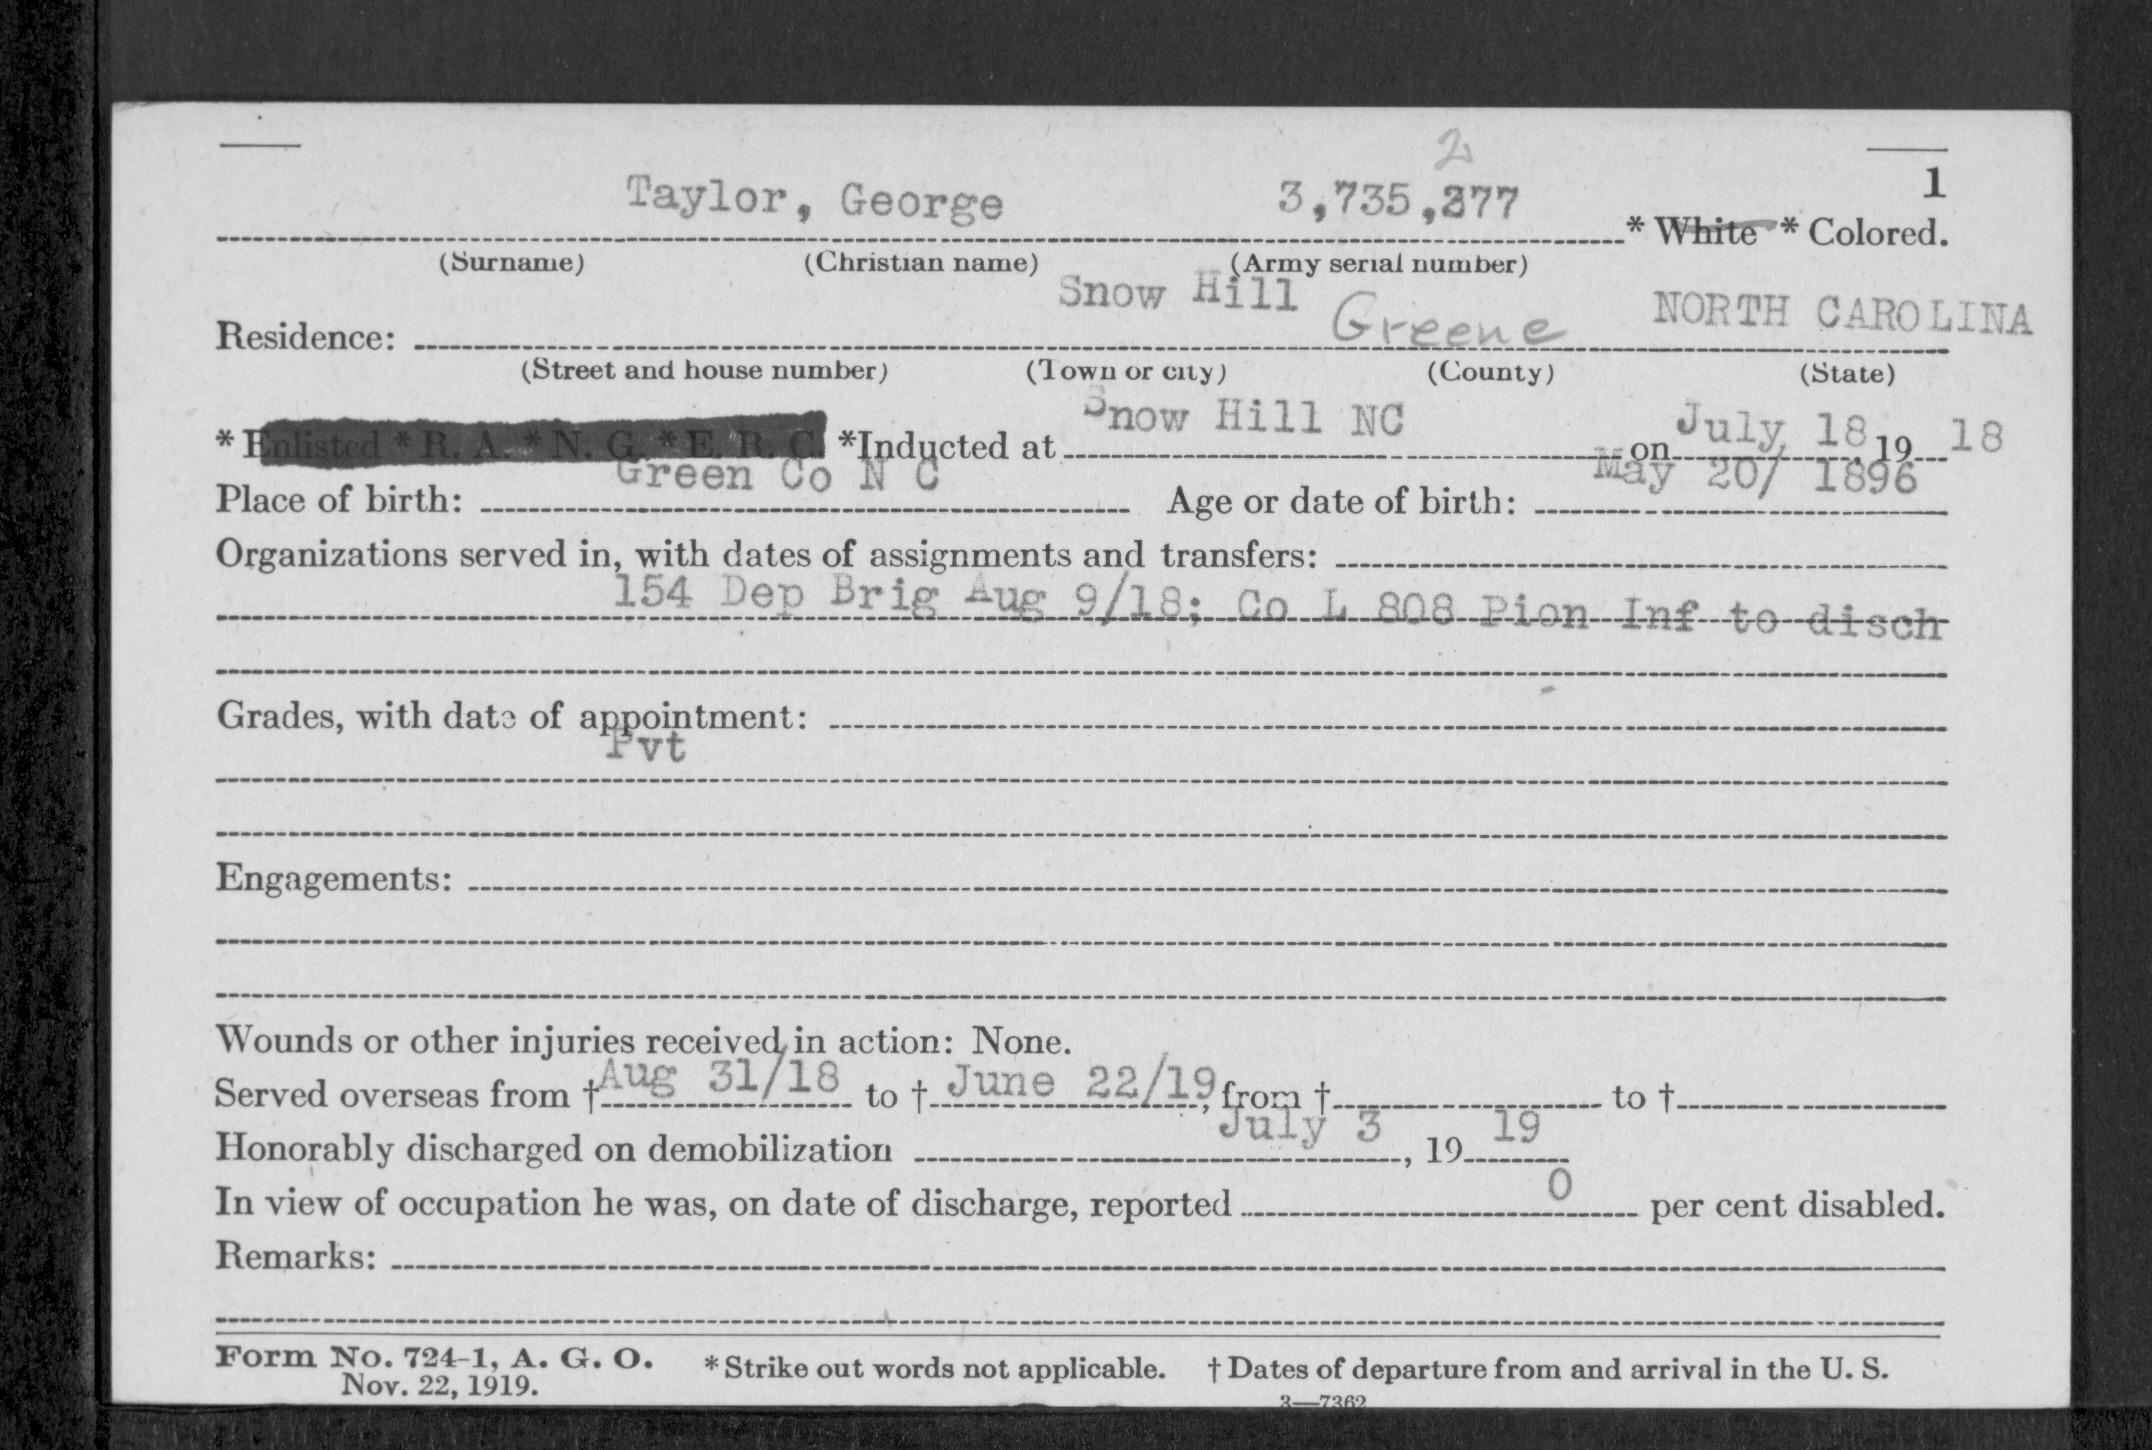 2
1
Taylor, George 3,735,277 * White * Colored.
(Surname) (Christian name) (Army serial number)
Snow Hill Greene NORTH CAROLINA
Residence:
(Street and house number) (Town or city) (County) (State)
* Enlisted * R. A. * N. G. * E. R. C. *Inducted at Snow Hill NC on July 18, 19 18
Place of birth: Green Co N C Age or date of birth: May 20/ 1896
Organizations served in, with dates of assignments and transfers:
154 Dep Brig Aug 9/18; Co L 808 Pion Inf to disch
Grades, with date of appointment:
Pvt
Engagements:
Wounds or other injuries received in action: None.
Served overseas from † Aug 31/18 to † June 22/19, from † to †
Honorably discharged on demobilization July 3, 19 19
In view of occupation he was, on date of discharge, reported 0 per cent disabled.
Remarks:
Form No. 724-1, A. G. O. * Strike out words not applicable. † Dates of departure from and arrival in the U. S.
Nov. 22, 1919.
3—7362